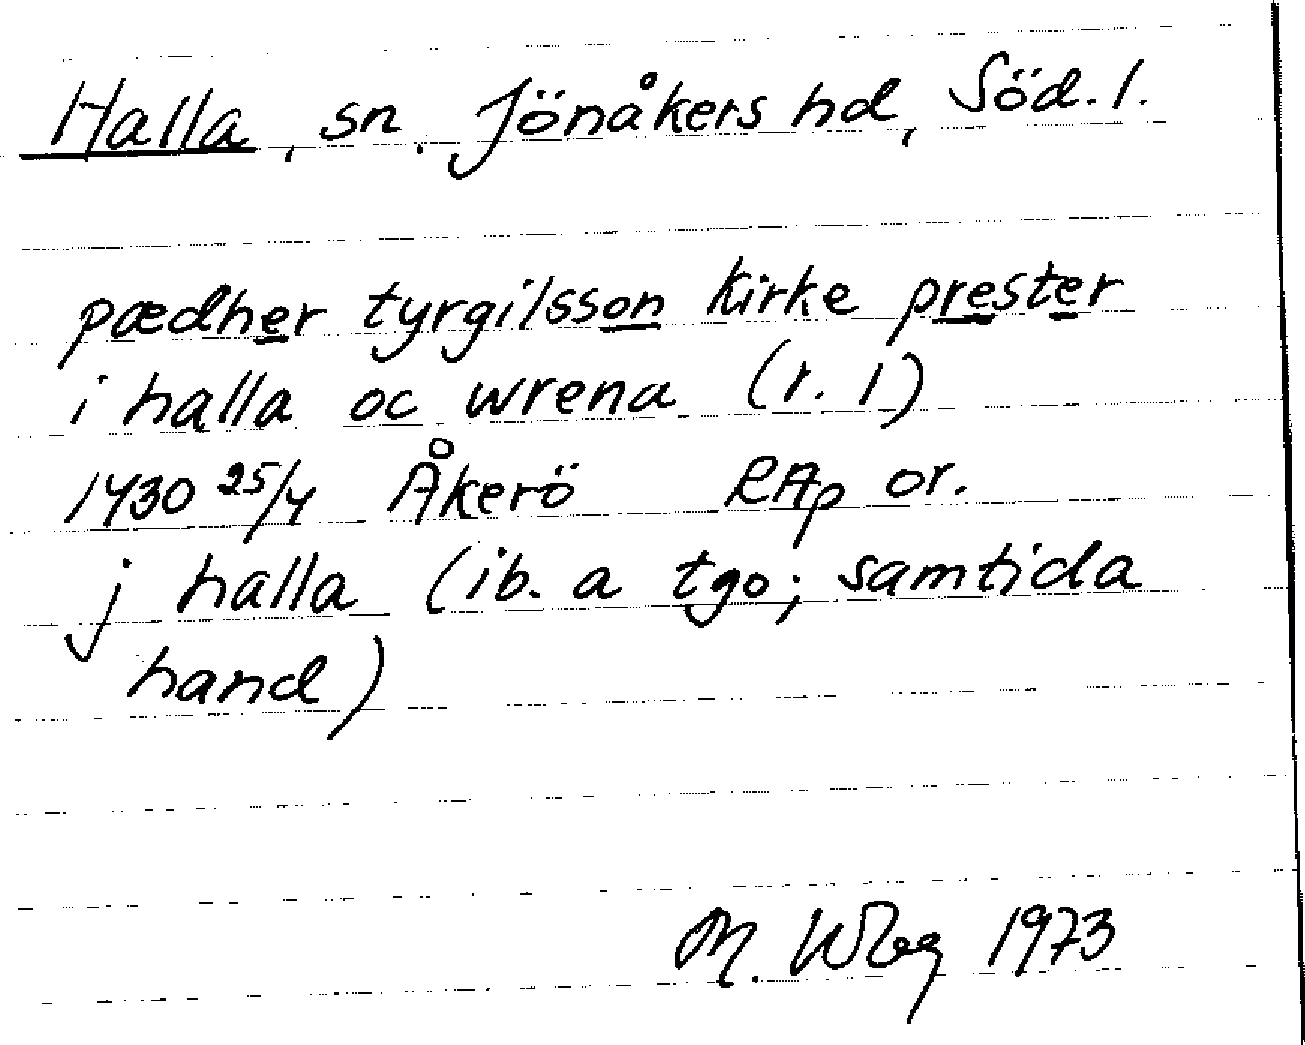 Halla, sn. Jönåkers hd, Söd. l.
pædher tyrgilsson kirke prester
i halla oc wrena (r. 1)
1430 25/4 Åkerö RAp or.
j halla (ib. a tgo; samtida
hand)
M. 1973